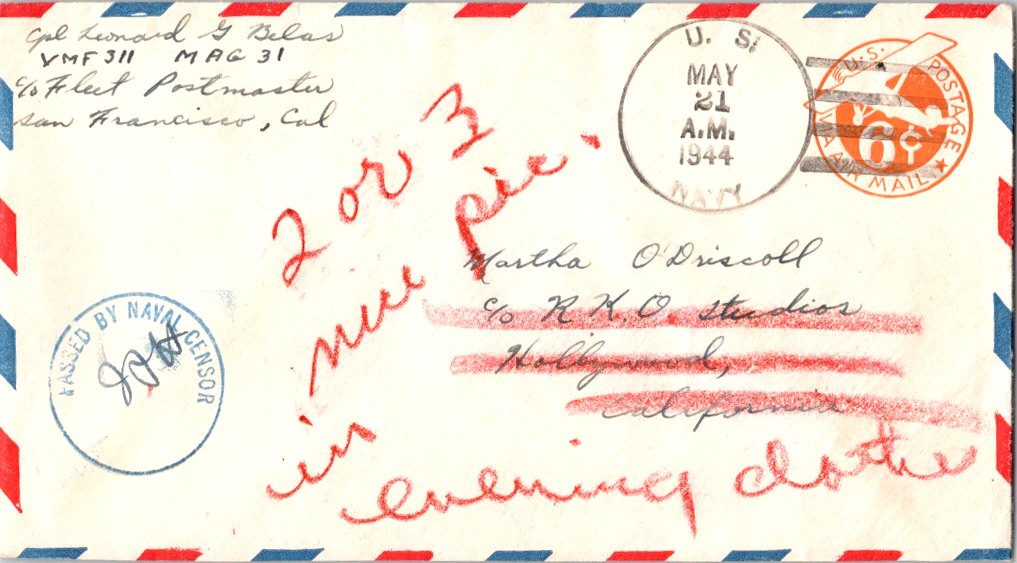 Cpl Leonard G Belas
VMF 311 MAG 31
c/o Fleet Postmaster
San Francisco, Cal
U. S.
MAY
21
A.M.
1944
NAVY
U.S. POSTAGE
6¢
VIA AIR MAIL
2 or 3
pic.
in
evening clothes
Martha O'Driscoll
c/o R.K.O. studios
Hollywood,
California
PASSED BY NAVAL CENSOR